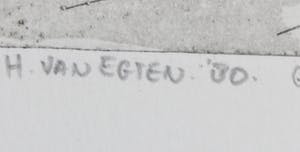 H. VAN EGTEN. '80.